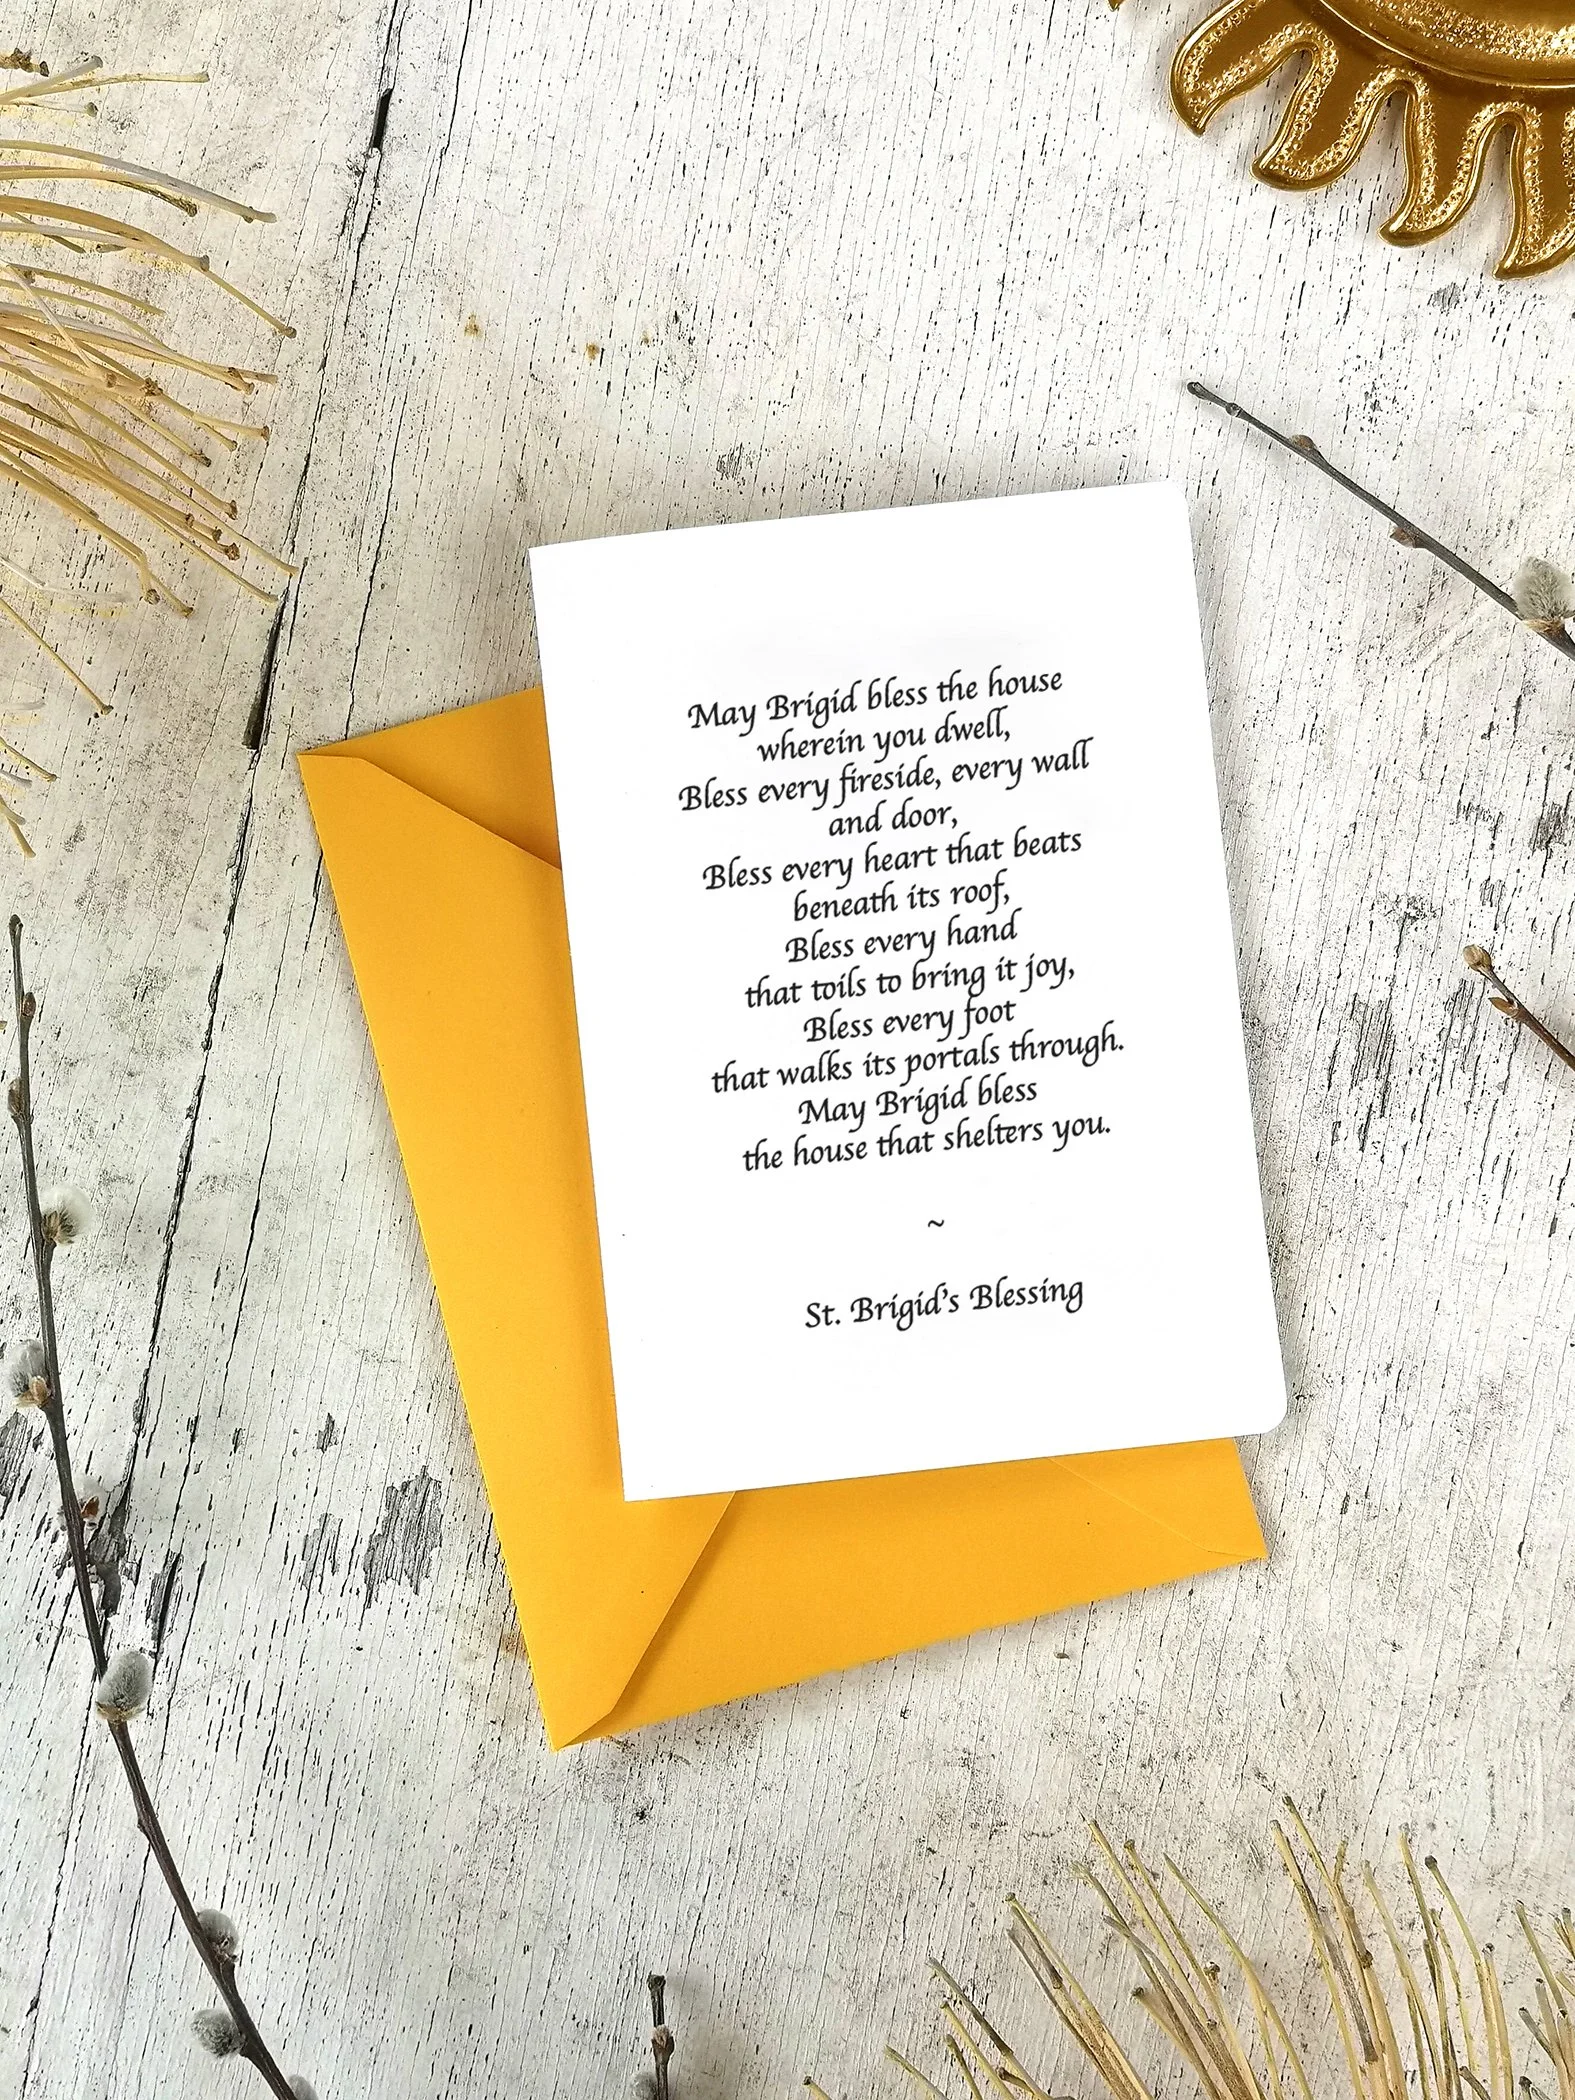 May Brigid bless the house
wherein you dwell,
Bless every fireside, every wall
and door,
Bless every heart that beats
beneath its roof,
Bless every hand
that toils to bring it joy,
Bless every foot
that walks its portals through.
May Brigid bless
the house that shelters you.
~
St. Brigid's Blessing